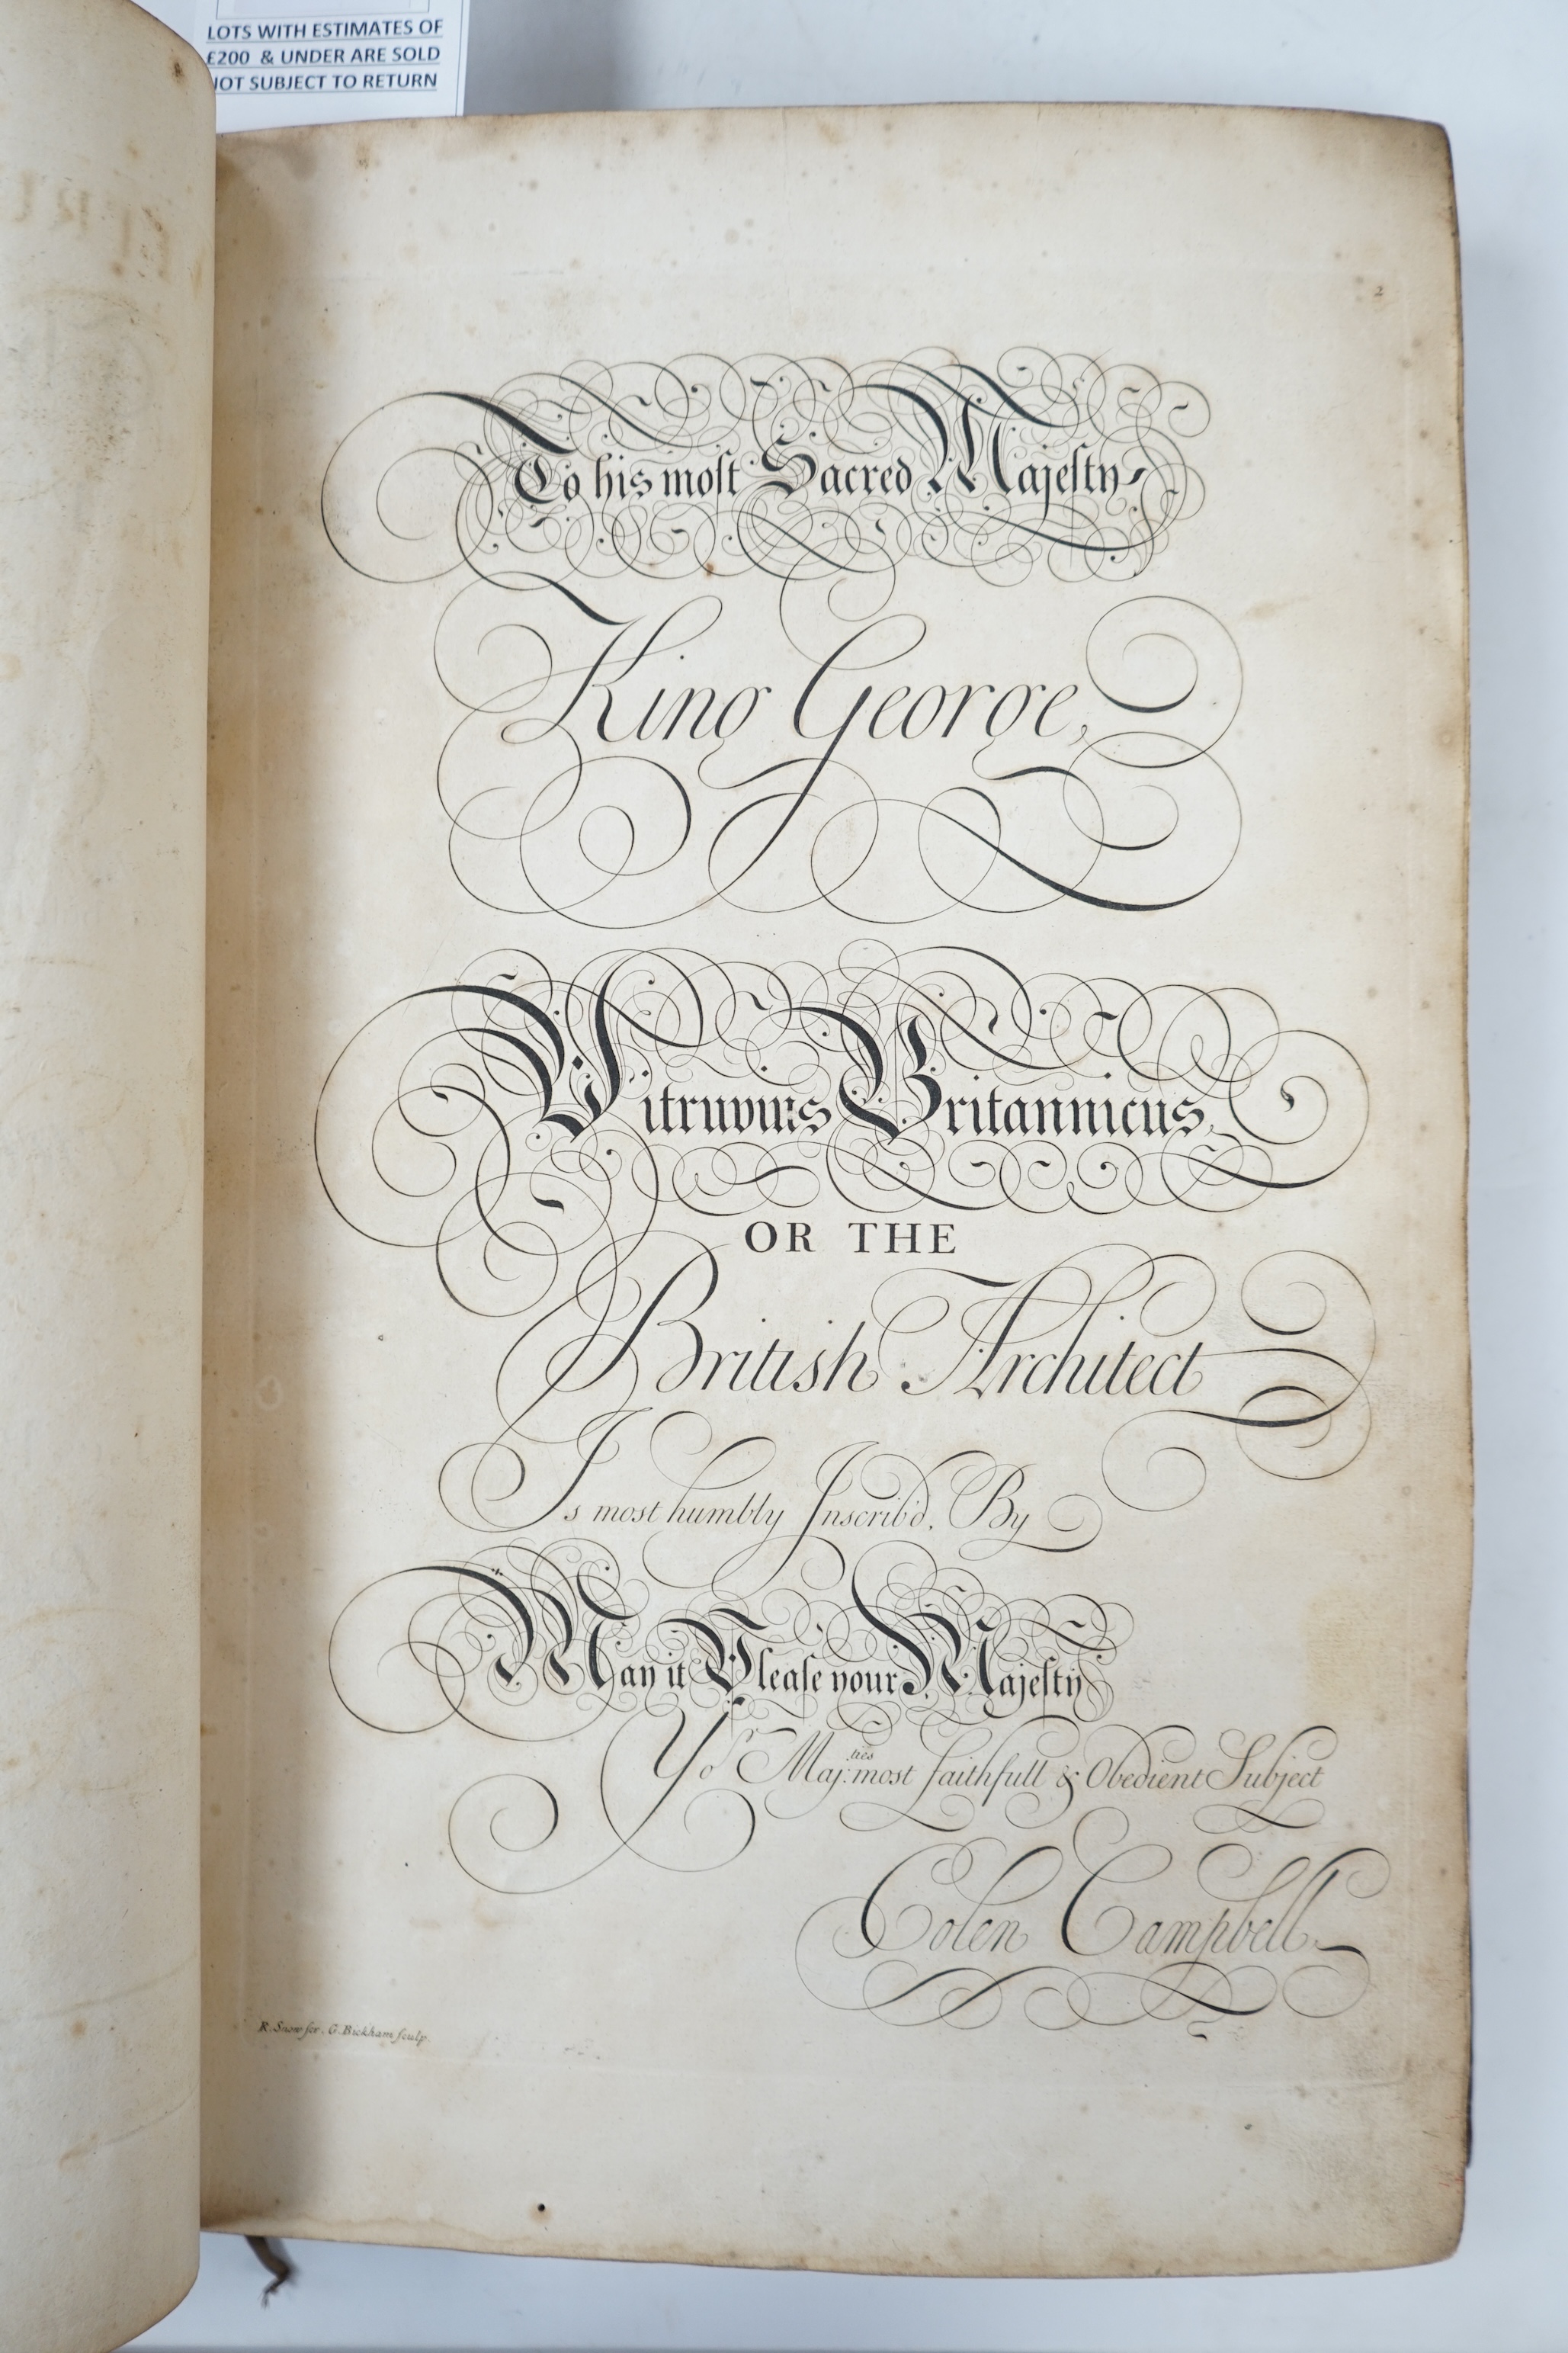 LOTS WITH ESTIMATES OF
£200 & UNDER ARE SOLD
NOT SUBJECT TO RETURN
2
To his most Sacred Majesty
King George,
Vitruvius Britannicus,
OR THE
British Architect
Is most humbly Inscrib'd, By
May it Please your Majesty
Yor Maj:ties most faithfull & Obedient Subject
Colen Campbell.
R. Snow scr. G. Bickham sculp.